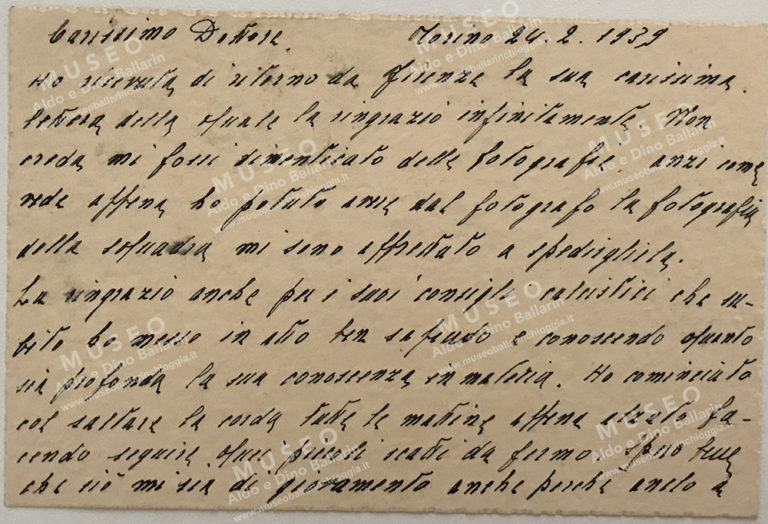 Carissimo Dottore. Torino 24. 2. 1939
Ho ricevuta di ritorno da Firenze la sua carissima.
lettera della quale la ringrazio infinitamente. Non
creda mi fossi dimenticato delle fotografie. anzi come
vede appena ho potuto avere dal fotografo la fotografia
della squadra mi sono affrettato a spedirgliela.
La ringrazio anche per i suoi consigli calcistici che su-
bito ho messo in atto ben sapendo e conoscendo quanto
sia profonda la sua conoscenza in materia. Ho cominciato
col saltare la corda tutte le mattine appena alzato fa-
cendo seguire quei piccoli scatti da fermo. Spero
che ciò mi sia di giovamento anche perché anelo a
MUSEO
Aldo e Dino Ballarin
www.museoballarinchioggia.it